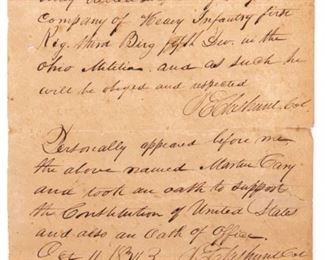 Company of Heavy Infantry first
Reg. third Brig fifth Div. in the
Ohio Militia and as such he
will be obeyed and respected
Col
Personally appeared before me
the above named Martin Cary
and took an oath to support
the Constitution of United States
and also an Oath of Office.
Oct 11 1834 Col